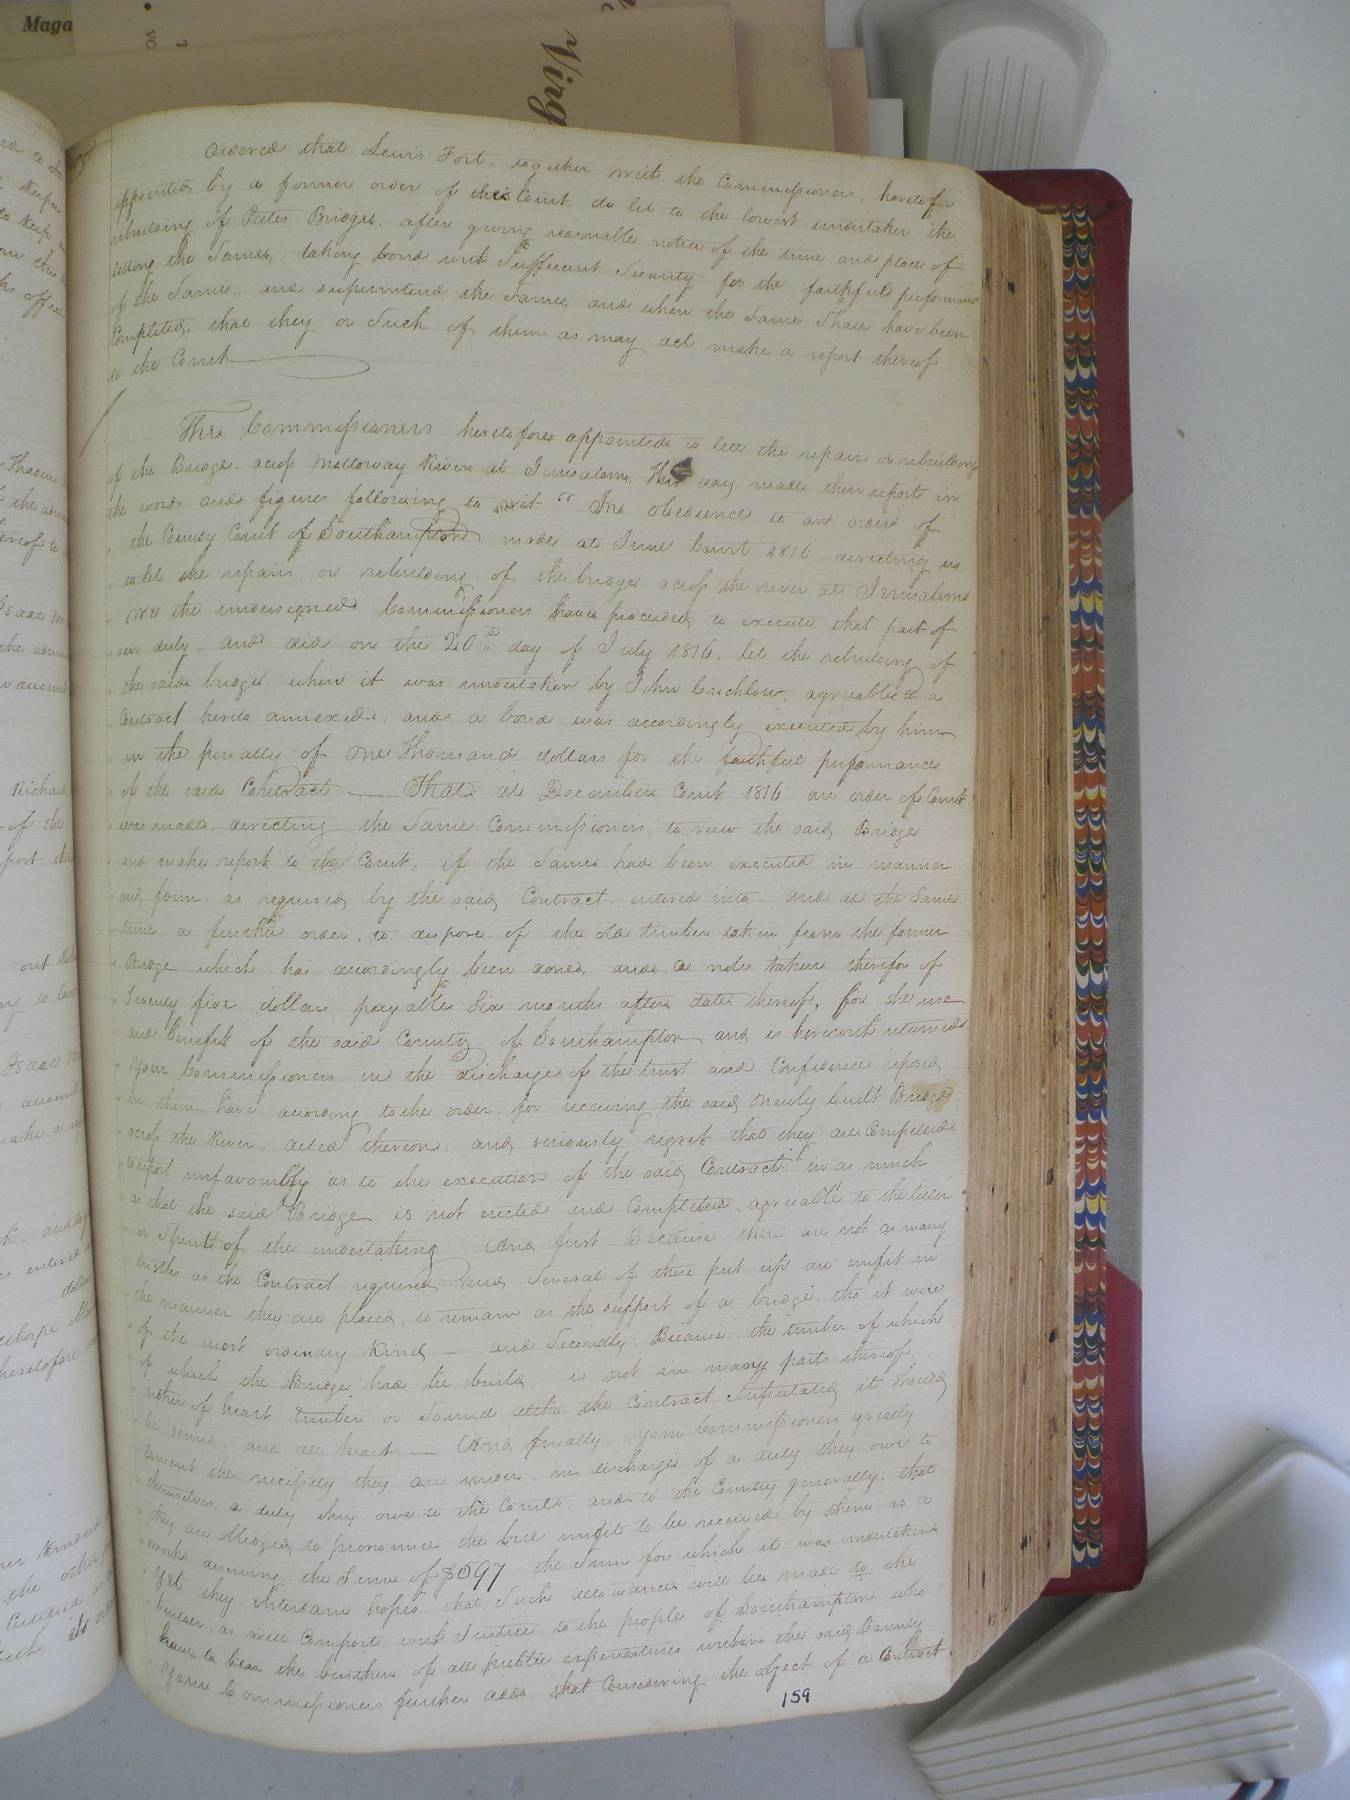 Maga
Virg
ordered that Lewis Fort, together with the Commissioners, heretofor
appointed by a former order of this Court do let to the lowest undertaker the
rebuilding of Peetes Bridges, after giving reasonable notice of the time and place of
letting the Same, taking bond with Sufficient Security for the faithful performance
of the Same, and superintend the Same, and when the Same Shall have been
Completed, that they or Such of them as may act make a report thereof
to the Court
The Commissioners heretofore appointed to lett the repairs or rebuilding
of the Bridge across Nottoway River at Jerusalem, This day made their report in
the words and figures following to wit " In obedience to an order of
the County Court of Southampton made at June Court 1816 directing us
to let the repairs or rebuilding of the bridge across the river at Jerusalem
We the undersigned Commissioners have proceeded to execute that part of
our duty, and did on the 20th day of July 1816, let the rebuilding of
the said bridge when it was undertaken by John Crichlow, agreeable to a
Contract hereto annexed, and a bond was accordingly executed by him
in the penalty of One Thousand dollars for the faithful performance
of the said Contract — That at December Court 1816 an order of Court
was made, directing the Same Commissioners, to view the said Bridge
and make report to the Court, if the Same had been executed in manner
and form as required by the said Contract entered into - and at the Same
time a further order, to dispose of the old timber taken from the former
Bridge which has accordingly been done, and a note taken therefor of
Twenty five dollars payable Six months after date thereof, for the use
and benefit of the said County of Southampton and is herewith returned
Your Commissioners in the discharge of the trust and Confidence reposed
in them have according to the order for receiving the said newly built Bridge
across the River, acted thereon, and seriously regret that they are Compelled
to report unfavourably as to the execution of the said Contract in as much
as that the said Bridge is not erected and Completed, agreeable to the letter
or Spirit of the undertaking And first Because there are not as many
trestles as the Contract required and Several of those put up are unfit in
the manner they are placed, to remain as the support of a bridge tho it were
of the most ordinary kind — and Secondly Because the timber of which
of which the Bridge had be build, is not in many parts thereof
either of heart timber or Sound altho the Contract stipulated it should
be sound and all heart — And finally your Commissioners greatly
lament the necessity they are under in discharge of a duty they owe to
themselves a duty they owe to the Court and to the County generally, that
they are obliged to pronounce the bridge unfit to be received by them as a
work deserving the Sum of $597 the Sum for which it was undertaken
Yet they entertain hopes that Such allowance will be made to the
builder as will Comport with Justice to the people of Southampton who
have to bear the burthen of all public expenditures within the said County
Your Commissioners further add, that Considering the object of a Contract
159